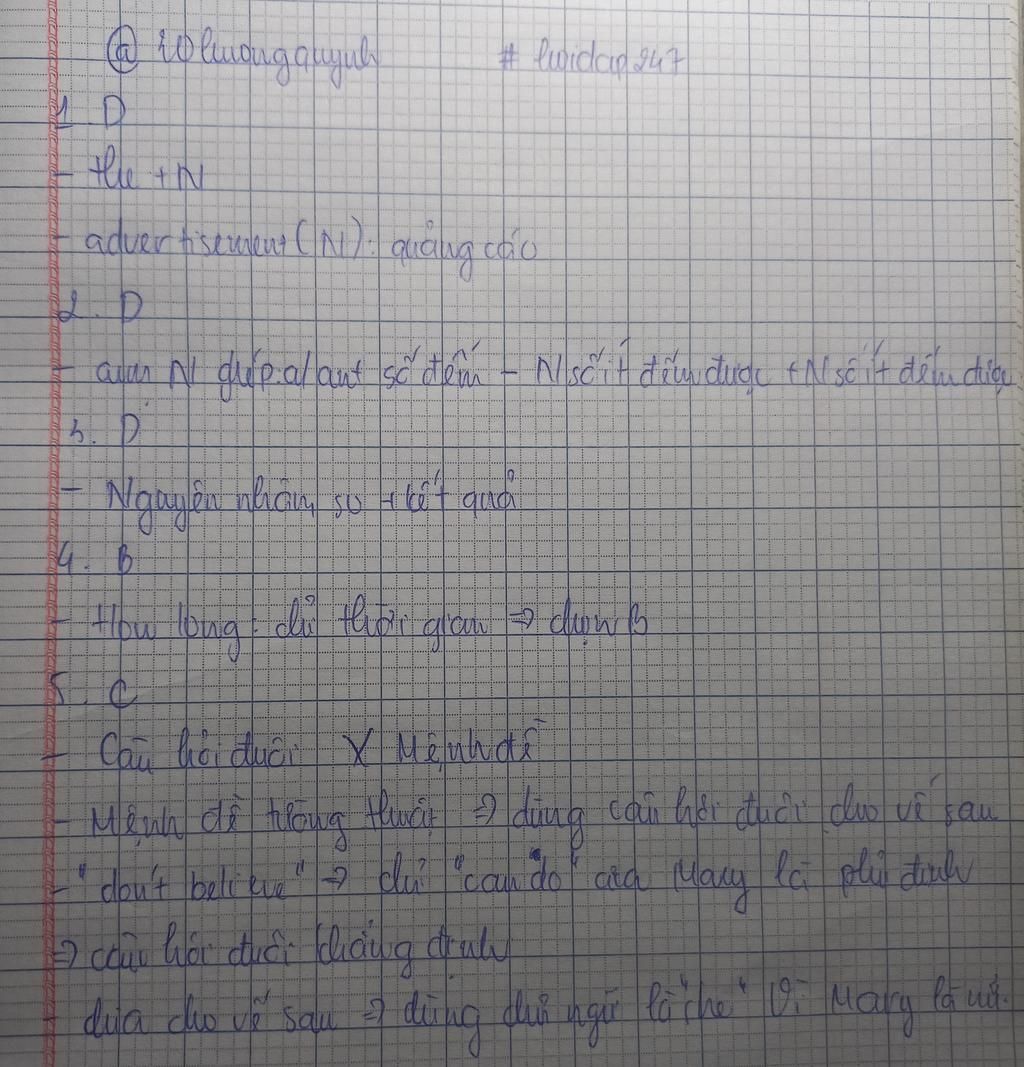 @ # hoidap247
1. D
- the + N
- advertisement (N): quảng cáo
2. D
- N ghép: a/an + số đếm - N số ít đếm được + N số ít đếm được
3. D
- Nguyên nhân, so + kết quả
4. B
- How long: chỉ thời gian => chọn B
5. C
- Câu hỏi đuôi X Mệnh đề
- Mệnh đề tường thuật => dùng câu hỏi đuôi cho vế sau
- "don't believe" => chỉ "can do" của Mary là phủ định
=> câu hỏi đuôi khẳng định
dựa cho vế sau => dùng chủ ngữ là "she" Vì Mary là nữ.